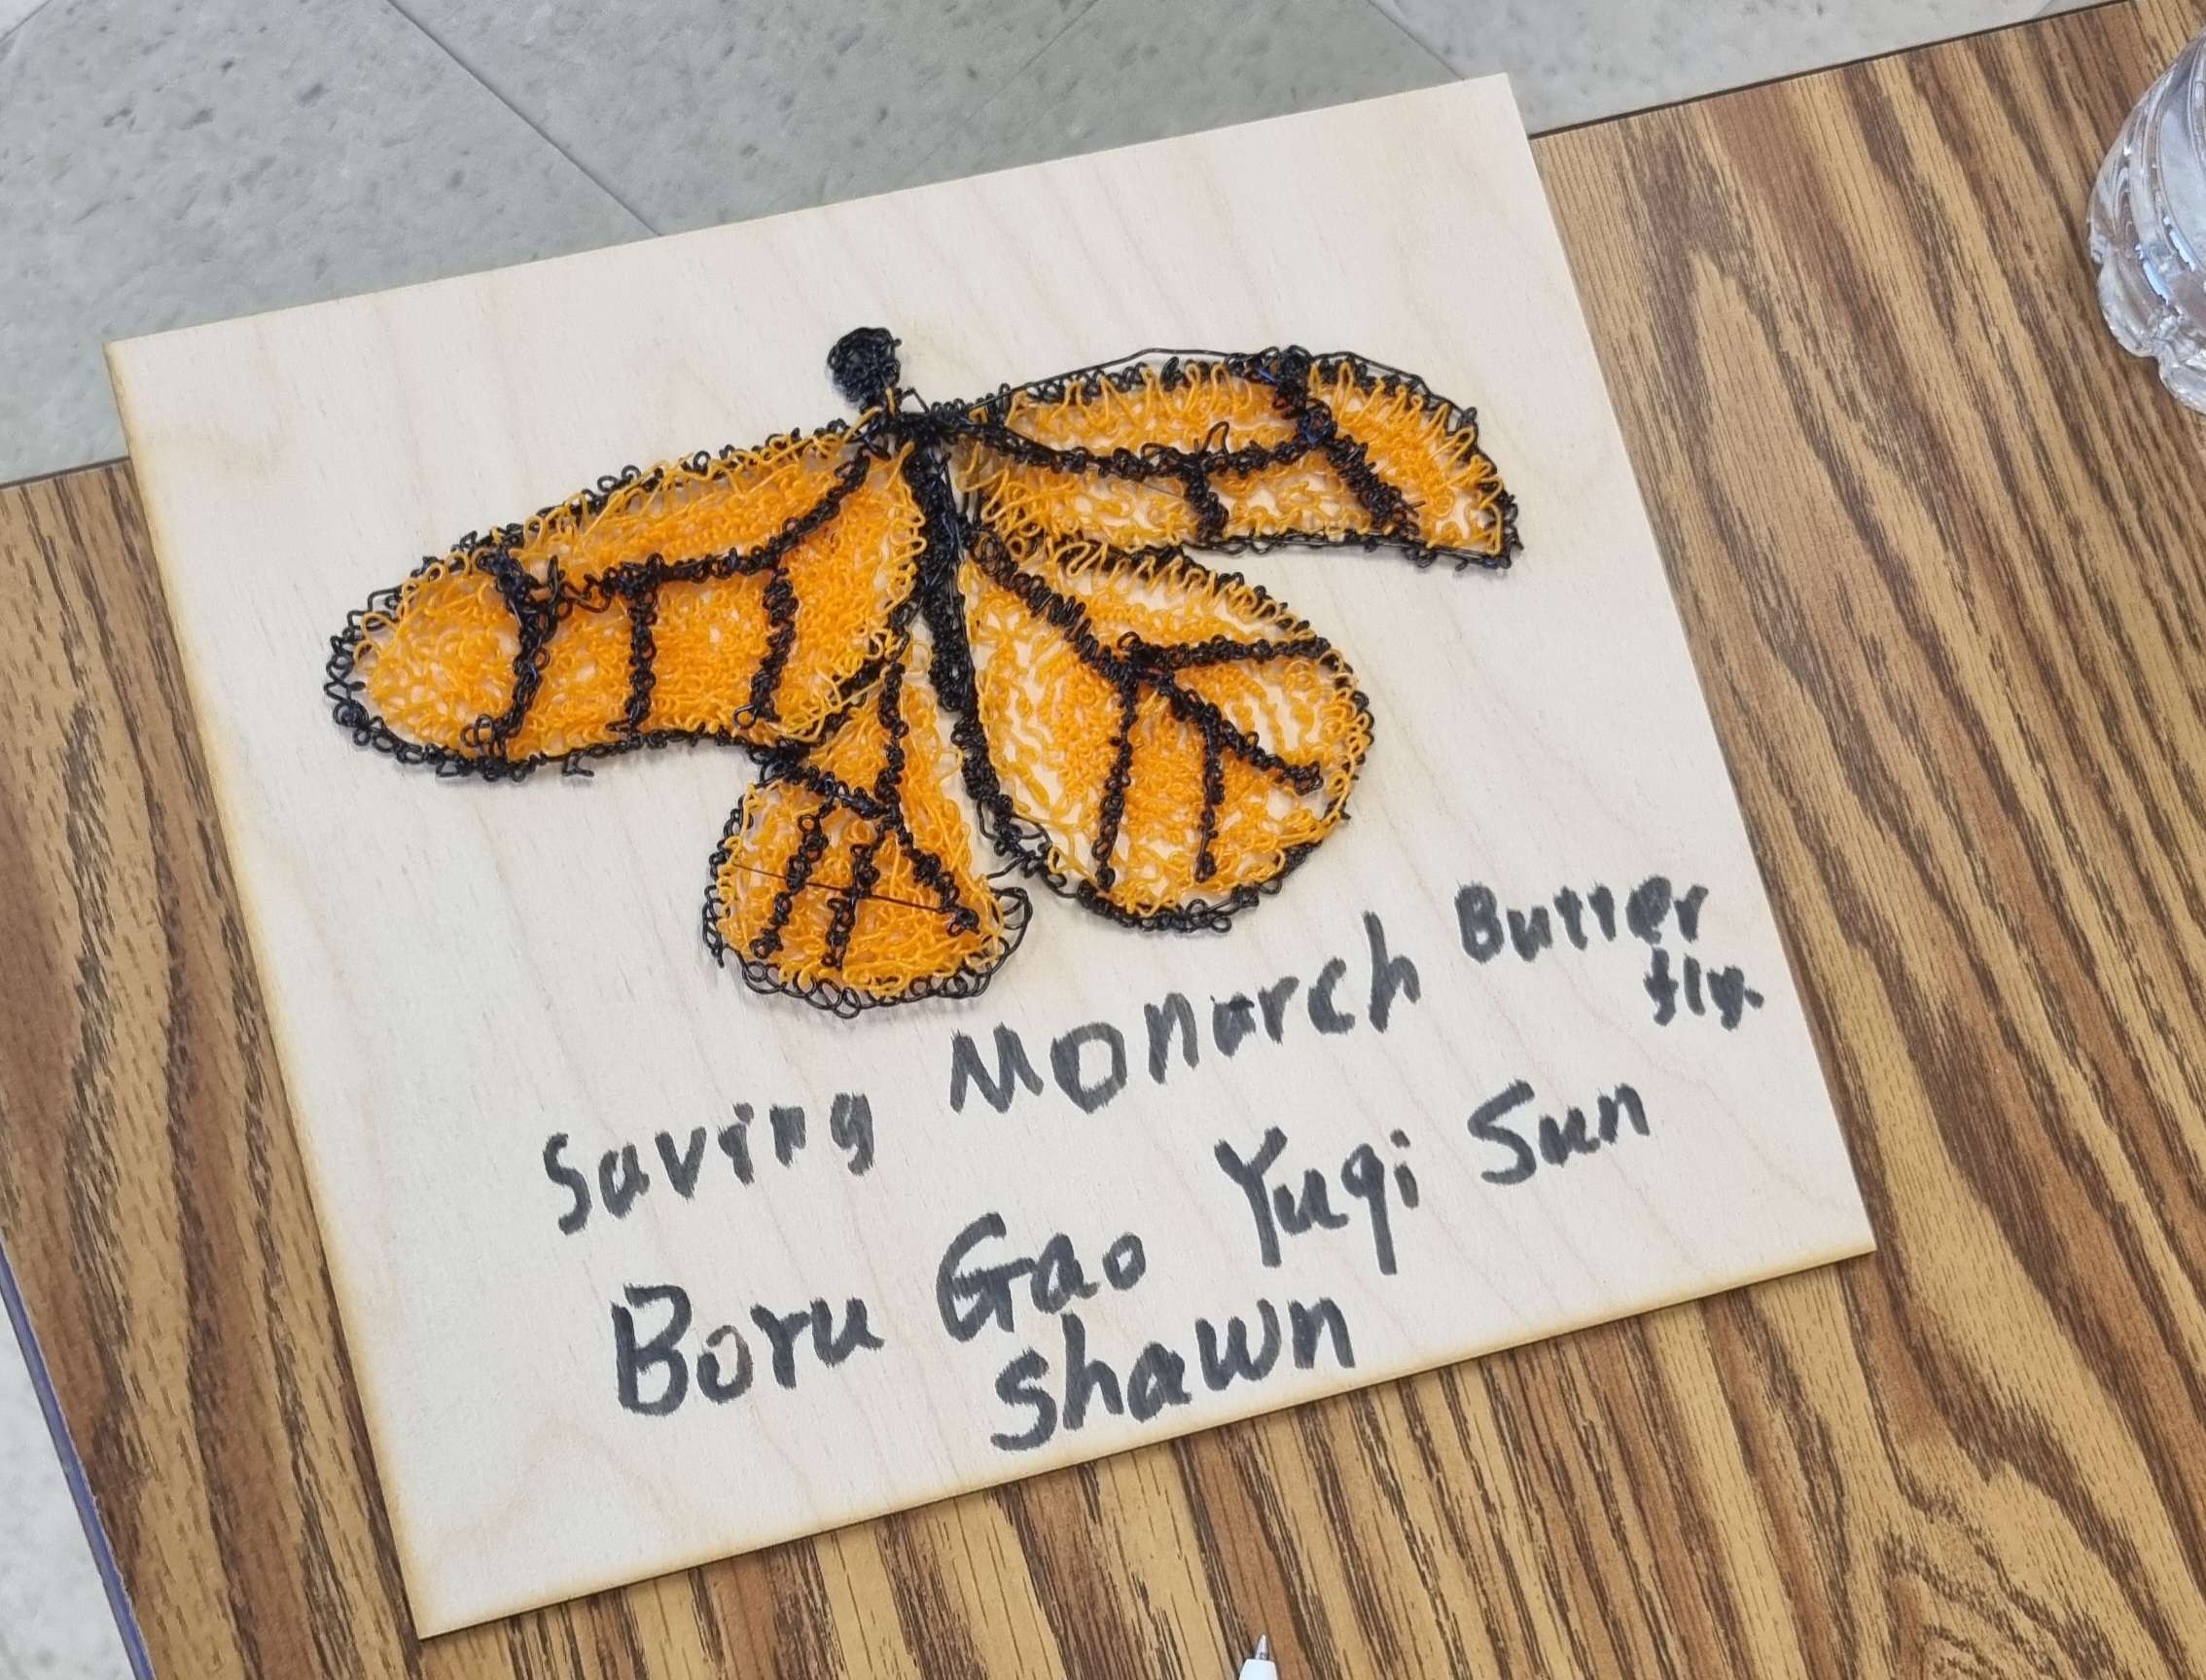 Saving Monarch Butter
fly.
Boru Gao Yuqi Sun
Shawn